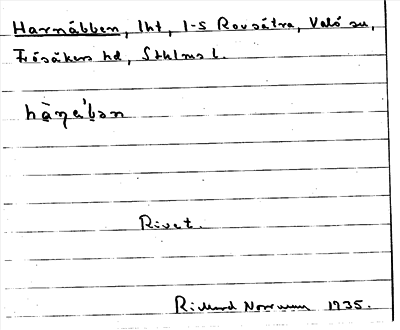 Harnäbben, lht, 1-s Rovsätra, Valö sn,
Frösåkers hd, Sthlms l.
hà̱ŋa'ban
Rivet.
Richard Norrman 1935.